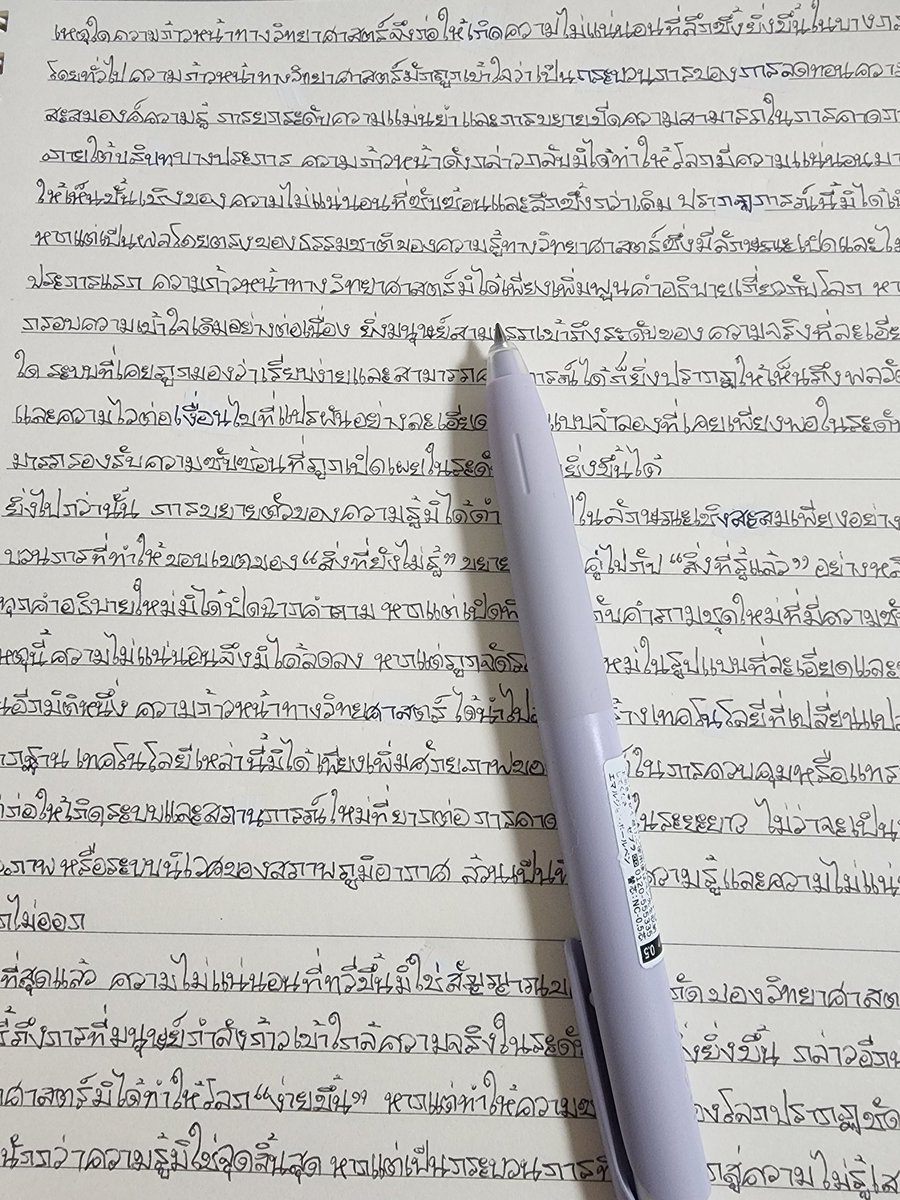 เหตุใดความก้าวหน้าทางวิทยาศาสตร์จึงก่อให้เกิดความไม่แน่นอนที่ลึกซึ้งยิ่งขึ้นในบาง
โดยทั่วไป ความก้าวหน้าทางวิทยาศาสตร์มักถูกเข้าใจว่าเป็นกระบวนการของการลดทอนความ
สะสมองค์ความรู้ การยกระดับความแม่นยำ และการขยายขีดความสามารถในการคาด
ภายใต้บริบทบางประการ ความก้าวหน้าดังกล่าวกลับมิได้ทำให้โลกมีความแน่นอน
ให้เห็นชั้นเชิงของความไม่แน่นอนที่ซับซ้อนและลึกซึ้งกว่าเดิม ปรากฏการณ์นี้มิได้
หากแต่เป็นผลโดยตรงของธรรมชาติของความรู้ทางวิทยาศาสตร์ซึ่งมีลักษณะเปิดและ
ประการแรก ความก้าวหน้าทางวิทยาศาสตร์มิได้เพียงเพิ่มพูนคำอธิบายเกี่ยวกับโลก
กรอบความเข้าใจเดิมอย่างต่อเนื่อง ยิ่งมนุษย์สามารถเข้าถึงระดับของความจริงที่ละเอีย
ใด ระบบที่เคยถูกมองว่าเรียบง่ายและสามารถค การณ์ได้ ก็ยิ่งปรากฏให้เห็นถึงพลวั
และความไวต่อเงื่อนไขที่แปรผันอย่างละเอียด แบบจำลองที่เคยเพียงพอในระดั
มารถรองรับความซับซ้อนที่ถูกเปิดเผยในระดั ยิ่งขึ้นได้
ยิ่งไปกว่านั้น การขยายตัวของความรู้มิได้ดำ ปในลักษณะเชิงสะสมเพียงอย่าง
บวนการที่ทำให้ขอบเขตของ “สิ่งที่ยังไม่รู้” ขยาย คู่ไปกับ “สิ่งที่รู้แล้ว” อย่าง
ทุกคำอธิบายใหม่มิได้ปิดฉากคำถาม หากแต่เปิด กับคำถามชุดใหม่ที่มีความซั
หตุนี้ ความไม่แน่นอนจึงมิได้ลดลง หากแต่ถูกจัด หม่ในรูปแบบที่ละเอียดและ
นอีกมิติหนึ่ง ความก้าวหน้าทางวิทยาศาสตร์ได้นำไป ร้างเทคโนโลยีที่เปลี่ยนแปล
กฐาน เทคโนโลยีเหล่านี้มิได้เพียงเพิ่มศักยภาพขอ ในการควบคุมหรือแทร
ก่อให้เกิดระบบและสถานการณ์ใหม่ที่ยากต่อการคาด ในระยะยาว ไม่ว่าจะเป็น
ภาพหรือระบบนิเวศของสภาพภูมิอากาศ ล้วนเป็น ความรู้และความไม่แน่
กไม่ออก
ที่สุดแล้ว ความไม่แน่นอนที่ทวีขึ้นมิใช่สัญญาณข กัดของวิทยาศาสต
ชี้ถึงการที่มนุษย์กำลังก้าวเข้าใกล้ความจริงในระดั ยิ่งขึ้น กล่าวอีก
าศาสตร์มิได้ทำให้โลก “ง่ายขึ้น” หากแต่ทำให้ความซ ของโลกปรากฏชัด
นักว่าความรู้มิใช่จุดสิ้นสุด หากแต่เป็นกระบวนการที่ สู่ความไม่รู้
0.5